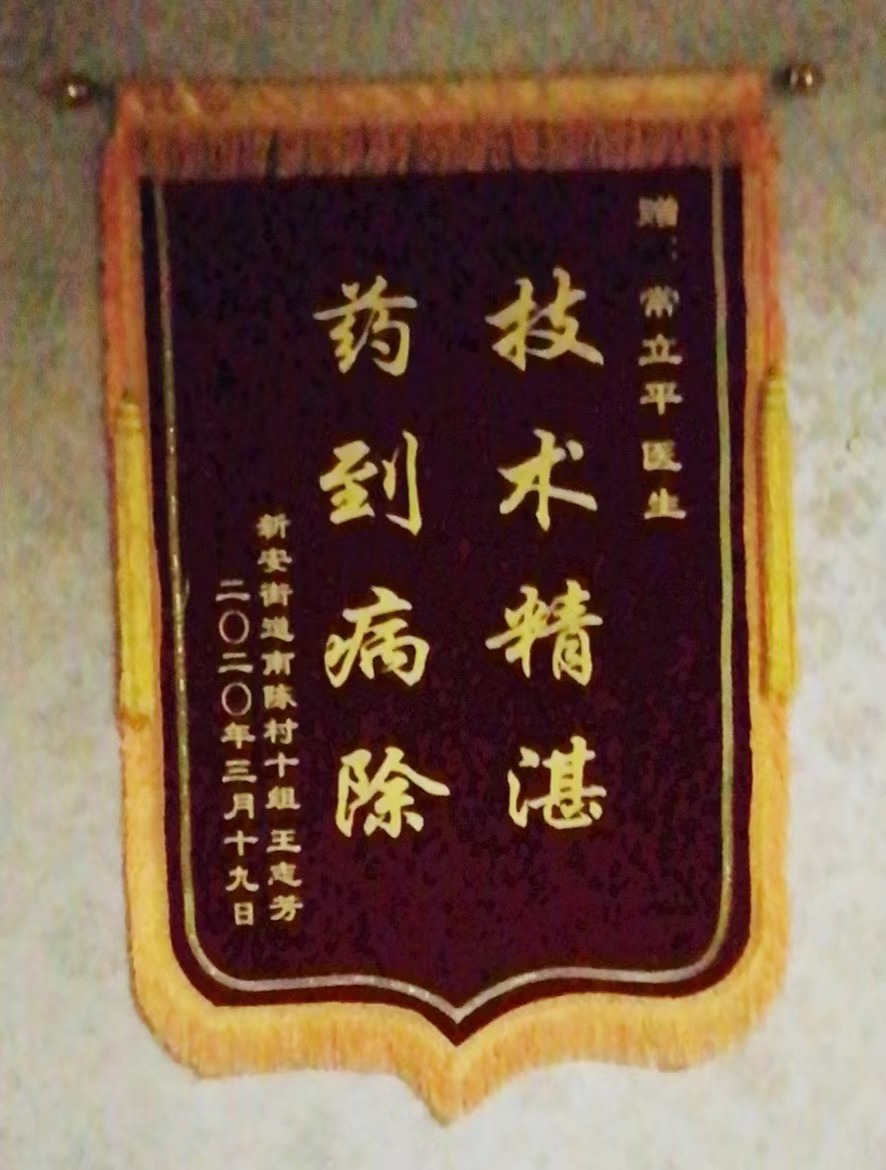 赠：常立平医生
技术精湛
药到病除
新安街道南陈村十组王志芳
二〇二〇年三月十九日